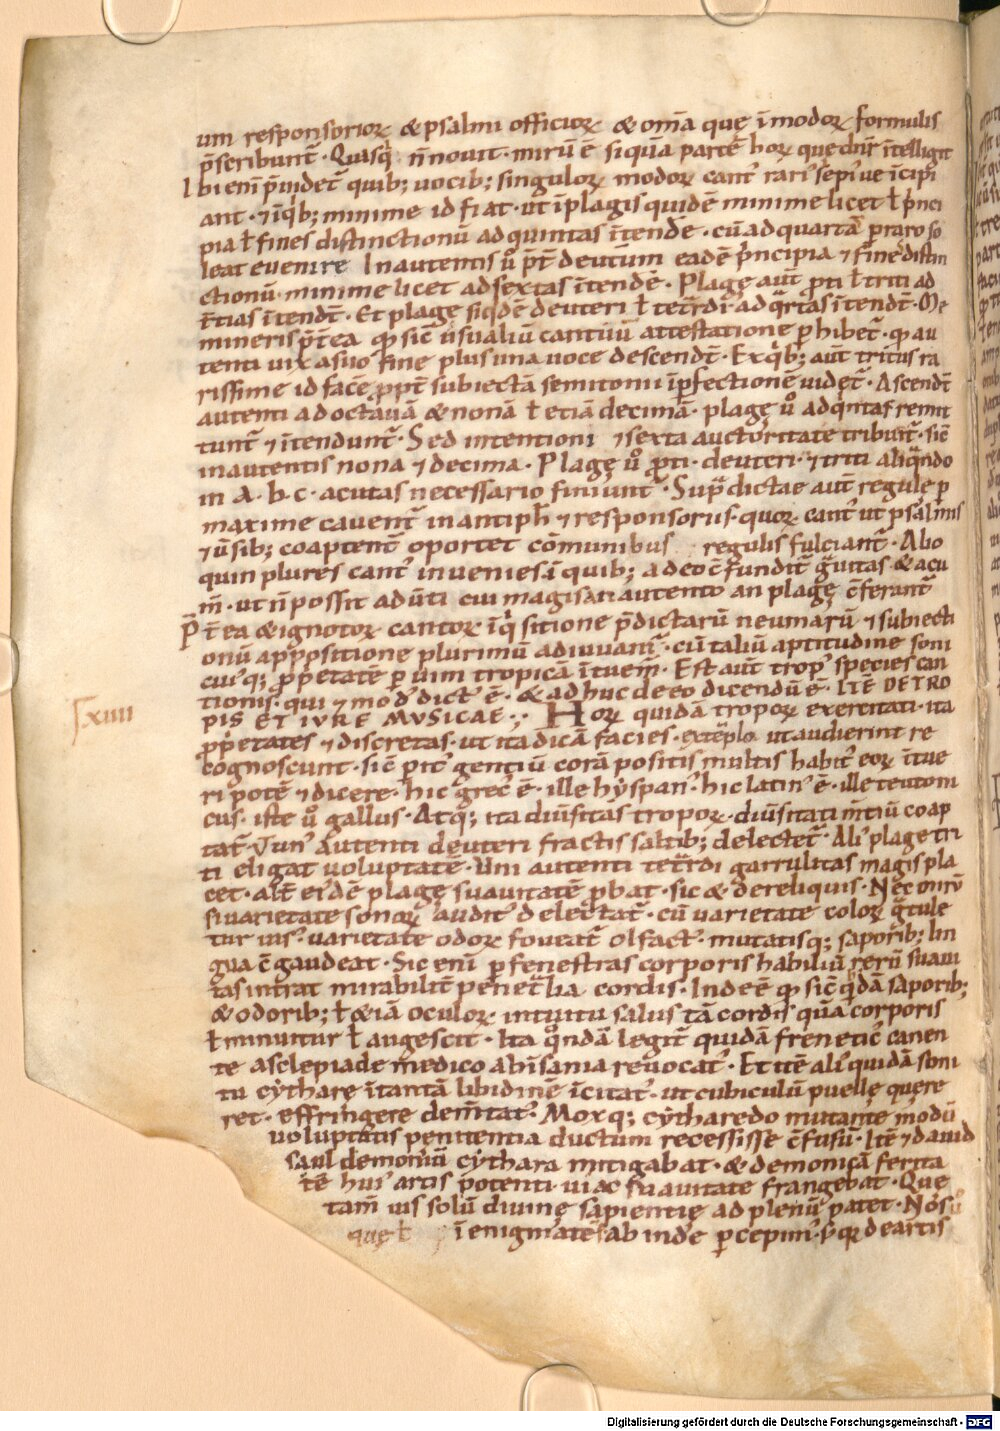 um responsorioꝝ & psalmi officioꝝ & om̄a que ī modoꝝ formulis
p̄scribunt̄ · Quasq; n̄ novit · mirū ē si quā partē hoꝝ que dn̄r ītelligit
Ibi eni p̄uidet̄ quib; uocib; singuloꝝ modoꝝ cant᾿ rari᾿ sepi᾿ ue īcipi
ant · ⁊ īq᾿b; minime id fiat · ut ī plagis quidē minime licet ł p᾿nci
pia ł fines distinctionū ad quintas ītende · cū ad quartā ꝑraro so
leat evenire In autentis ů p̄t deutum eadē p᾿ncipia ⁊ fine distin
ctionū · minime licet ad sextas ītendē · Plagę aut̄ ꝓti ł triti ad
t̄tias ītendt̄ · Et plagę siq᾿dē deuteri ł tet᾿rdi ad q᾿rtas ītendt̄ · Me
mineris p̄t̄ea qđ sic᾿ usualiū cantuū attestatione ꝑhibet̄ · qđ au
tenti vix a suo fine plus una uoce descendt̄ · Ex q᾿b; aut̄ tritus ra
rissime id facē ꝓpt̄ subiectā semitonii īꝑfectionē videt̄ · Ascendt̄
autenti ad octauā & nonā ł etiā decimā · plagę ů ad q᾿ntas remit
tunt̄ ⁊ ītendunt̄ · Sed intentioni ⁊ sexta auctoritate tribuit̄ · sic᾿
in autentis nona ⁊ decima · Plagę ů ꝓti · deuteri · ⁊ triti aliq᾿ndo
in a · b · c · acutas necessario finiunt̄ · Sup᾿dictae aut̄ regulę ꝑ
maxime cauent̄ in antiph̄ ⁊ responsoriis · quoꝝ cant᾿ ut psalmis
⁊ ūsib; coaptent̄ oportet cōmunibus regulis fulciant̄ · Alio
quin plures cant᾿ invenies ī quib; adeo c̄fundit̄ g᾿uitas & acu
m̄ · ut n̄ possit aduti cui magis an autento an plagę c̄ferant̄
P̄t̄ea & ignotoꝝ cantoꝝ īq᾿sitione p̄dictarū neumarū ⁊ subiecti
onū appositione plurimū adiuvam̄ · cū taliū aptitudine soni
cui᾿q; ꝓp᾿etatē ꝑ uim tropicā ītuem᾿ · Est aut̄ trop᾿ species can
tionis · qui ⁊ mod᾿ dict᾿ ē · & adhuc de eo dicendū ē · ITĒ DE TRO
PIS ET IVRE MVSICAE · Hoꝝ quidā tropoꝝ exercitati · ita
xiiii
ꝓp᾿etates ⁊ discretas · ut ita dicā facies · extēplo ut audierint re
cognoscunt · sic᾿ ꝑit᾿ gentiū corā positis multis habit᾿ eoꝝ ītue
ri potē ⁊ dicere · hic grec᾿ ē · ille hyspan᾿ · hic latin᾿ ē · ille teutoni
cus · iste ů gallus · Atq; ita diūsitas tropoꝝ · diūsitati m̄tiū coap
tat̄ · ⁊ un᾿ autenti deuteri fractis saltib; delectet̄ · Ali᾿ plage tri
ti eligat voluptatē · Uni autenti tet᾿rdi garrulitas magis pla
cet · alt̄ ei᾿dē plagę suauitatē ꝓbat · sic & de reliquis · Nec mirū
si varietate sonoꝝ audit᾿ delectat̄ · cū varietate coloꝝ g᾿tule
tur uis᾿ · varietate odoꝝ foveat̄ olfact᾿ · mutatisq; saporib; lin
gua c̄gaudeat · Sic eni ꝑ fenestras corporis habiliū rerū suaui
tas intrat mirabilit̄ penet᾿lia cordis · Inde ē qđ sic᾿ q᾿dā saporib;
& odorib; ł & iā oculoꝝ intuitu salus tā cordis quā corporis
ł minuitur ł augescit · Ita q᾿ndā legit̄ quidā frenetic᾿ canen
te asclepiade medico ab īsania revocat᾿ · Et itē ali᾿ quidā soni
tu cytharę ī tantā libidinē īcitat᾿ · ut cubiculū puellę quere
ret · effringere dem̄tat᾿ · Moxq; cytharedo mutante modū
voluptatis penitentia ductum recessisse c̄fusū · Itē ⁊ david
saul demoniū cythara mitigabat · & demonicā ferita
tē hui᾿ artis potenti vi ac suavitate frangebat · Que
tam̄ vis solū divine sapientię ad plenū patet · Nos ů
quę ł ī enigmate ab inde ꝑcepim᾿ · qđ de artis